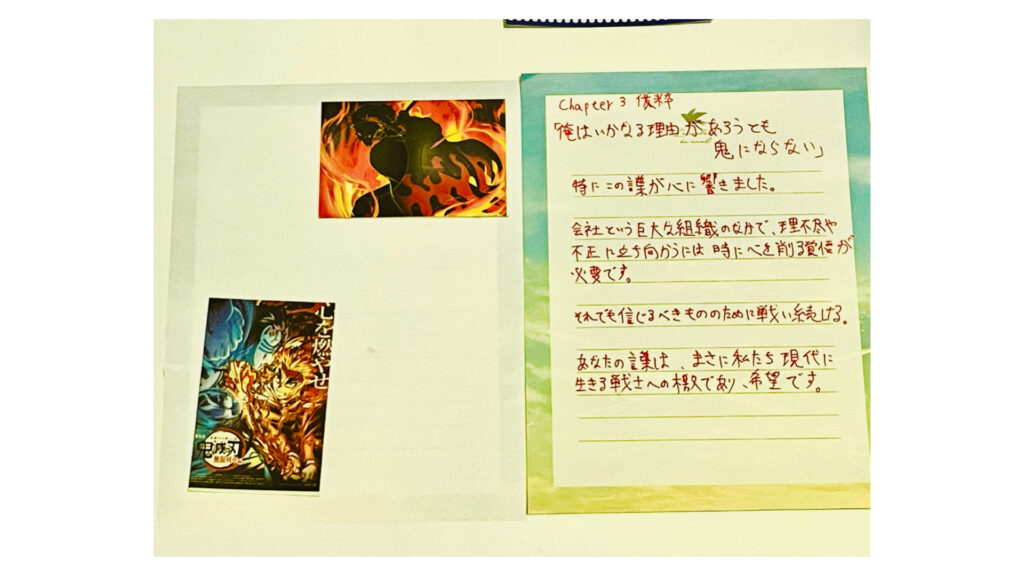 心を燃やせ
鬼滅の刃
無限列車編
Chapter 3 抜粋
「俺はいかなる理由があろうとも
鬼にならない」
特にこの言葉が心に響きました。
会社という巨大な組織のなかで、理不尽や
不正に立ち向かうには 時に心を削る覚悟が
必要です。
それでも信じるべきもののために戦い続ける。
あなたの言葉は、まさに私たち現代に
生きる戦士への檄であり、希望です。